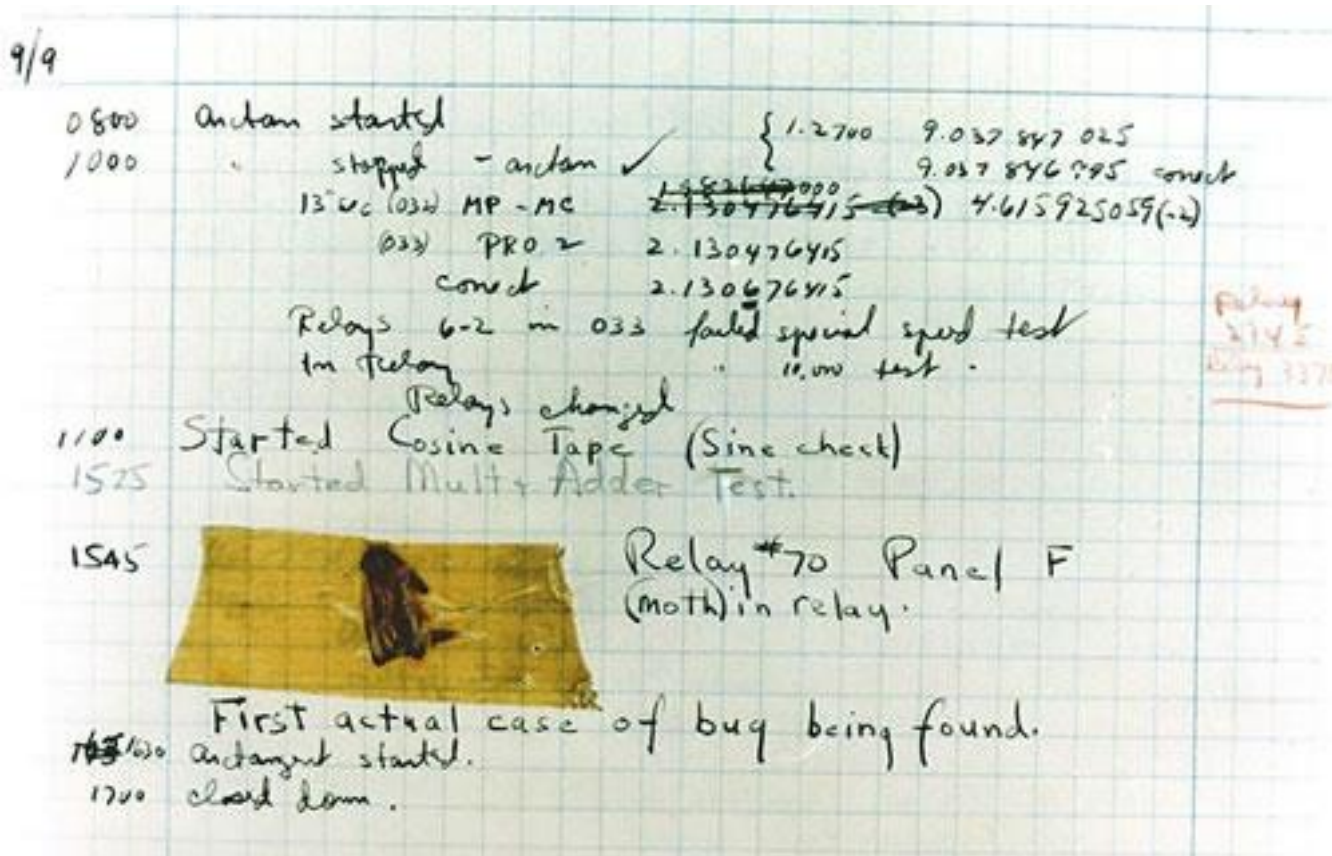 9/9
0800 Antan started
1000 " stopped - antan ✓ { 1.2700 9.037 847 025
9.037 846 795 conect
13"uc (032) MP - MC 2.130476415 (-3) 4.615925059(-2)
(033) PRO 2 2.130476415
conect 2.130676415
Relays 6-2 in 033 failed special speed test
In Relay " 10,000 test.
Relays changed
Relay
2145
Relay 337
1100 Started Cosine Tape (Sine check)
1525 Started Mult + Adder Test.
1545 Relay #70 Panel F
(moth) in relay.
First actual case of bug being found.
1630 antangent started.
1700 closed down.